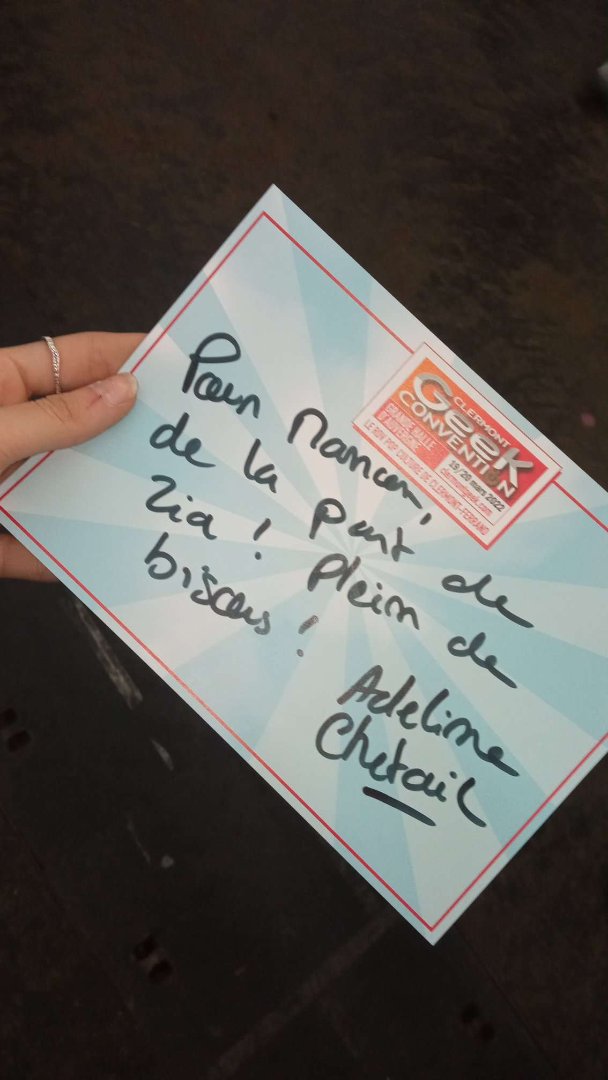 Pour Manon,
de la part de
Zia ! Plein de
bisous !
Adeline
Chetail
CLERMONT
Geek
CONVENTION
GRANDE HALLE
D'AUVERGNE
19/20 mars 2022
clermontgeek.com
LE RDV POP CULTURE DE CLERMONT-FERRAND